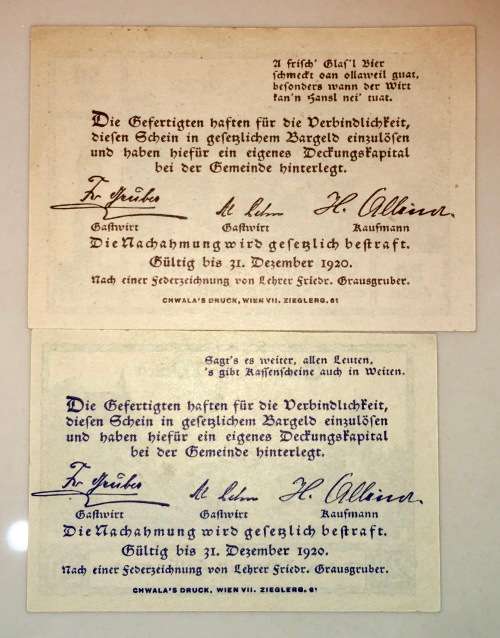 A frisch' Glas'l Bier
schmeckt oan ollaweil guat,
besonders wann der Wirt
kan'n Hansl nei' tuat.
Die Gefertigten haften für die Verbindlichkeit,
diesen Schein in gesetzlichem Bargeld einzulösen
und haben hiefür ein eigenes Deckungskapital
bei der Gemeinde hinterlegt.
Fr. Gruber M. Lehm H. Allina
Gastwirt Gastwirt Kaufmann
Die Nachahmung wird gesetzlich bestraft.
Gültig bis 31. Dezember 1920.
Nach einer Federzeichnung von Lehrer Friedr. Grausgruber.
CHWALA'S DRUCK, WIEN VII. ZIEGLERG. 61
Sagt's es weiter, allen Leuten,
's gibt Kassenscheine auch in Weiten.
Die Gefertigten haften für die Verbindlichkeit,
diesen Schein in gesetzlichem Bargeld einzulösen
und haben hiefür ein eigenes Deckungskapital
bei der Gemeinde hinterlegt.
Fr. Gruber M. Lehm H. Allina
Gastwirt Gastwirt Kaufmann
Die Nachahmung wird gesetzlich bestraft.
Gültig bis 31. Dezember 1920.
Nach einer Federzeichnung von Lehrer Friedr. Grausgruber.
CHWALA'S DRUCK, WIEN VII. ZIEGLERG. 61